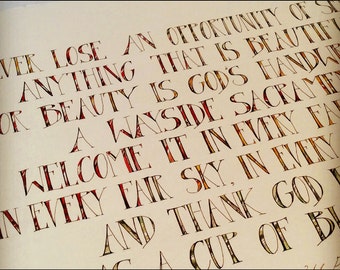 VER LOSE AN OPPORTUNITY OF S
ANYTHING THAT IS BEAUTIF
OR BEAUTY IS GOD'S HANDW
A WAYSIDE SACRAMEN
WELCOME IT IN EVERY FA
IN EVERY FAIR SKY, IN EVERY
AND THANK GOD
AS A CUP OF BL